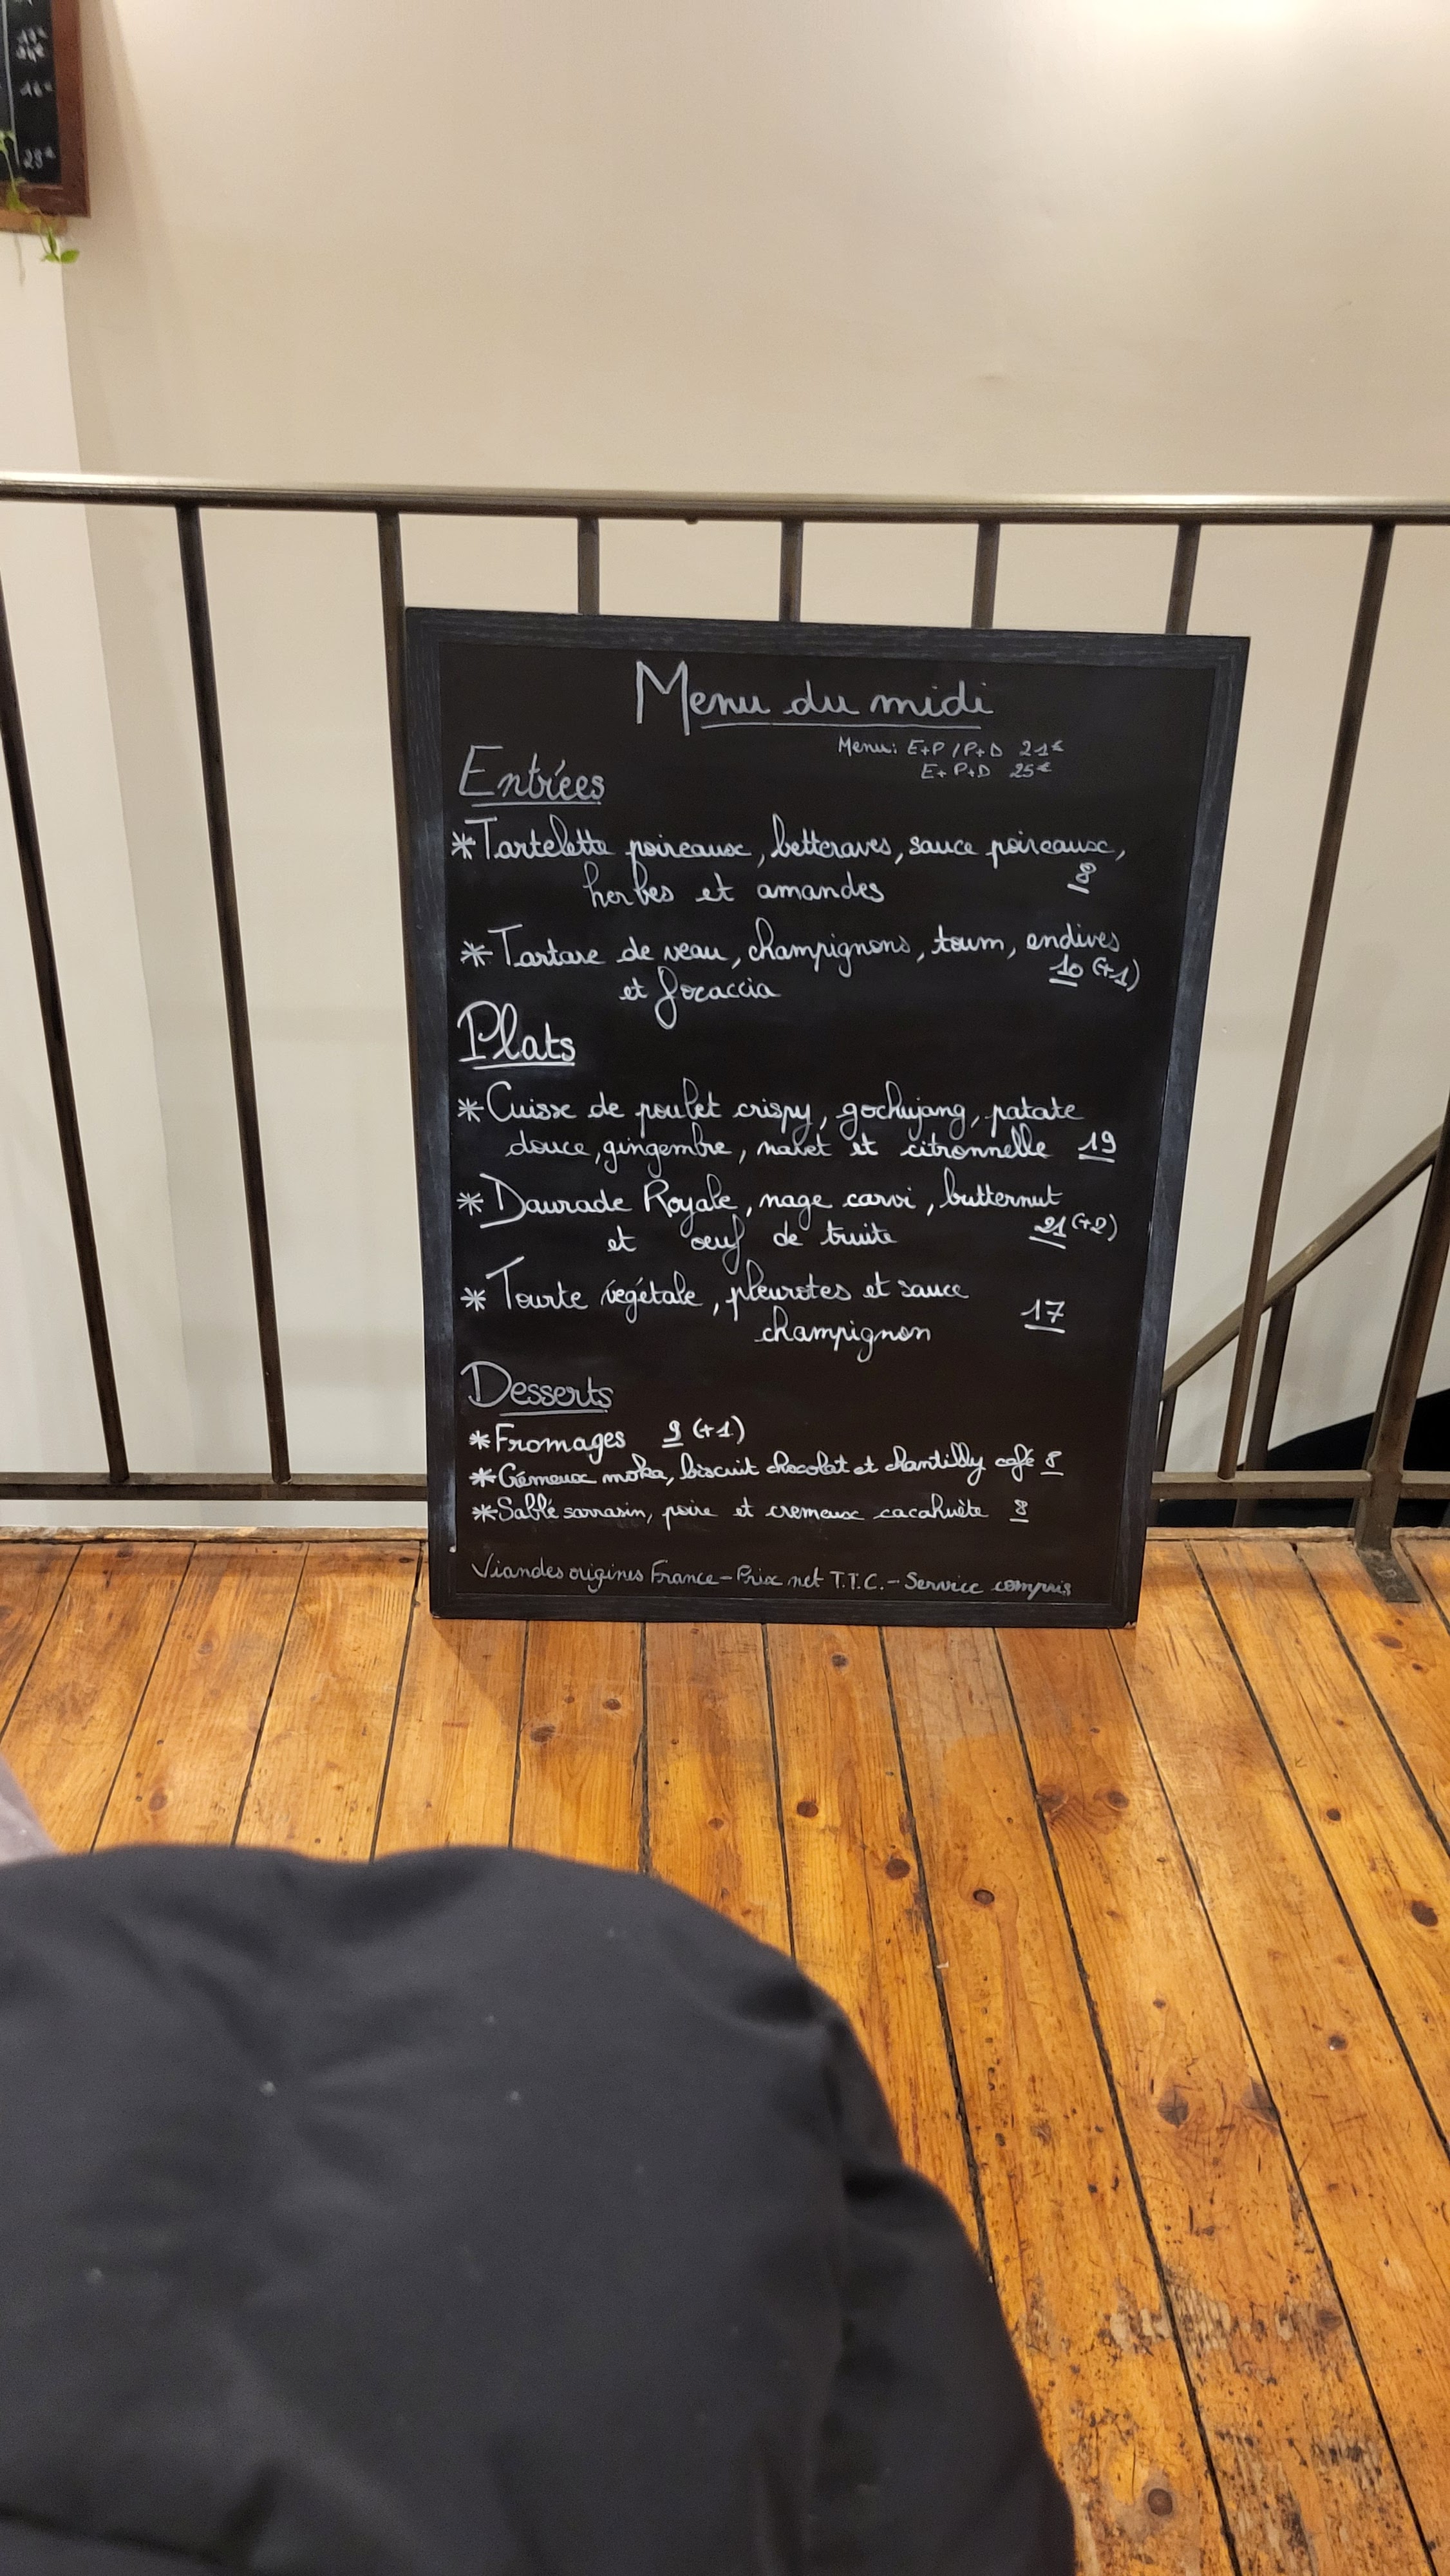 28€
Menu du midi
Menu: E+P / P+D 21€
E+P+D 25€
Entrées
*Tartelette poireaux, betteraves, sauce poireaux,
herbes et amandes 8
*Tartare de veau, champignons, toum, endives
et focaccia 10 (+1)
Plats
*Cuisse de poulet crispy, gochujang, patate
douce, gingembre, navet et citronnelle 19
*Daurade Royale, nage carvi, butternut
et oeuf de truite 21 (+2)
*Tourte végétale, pleurotes et sauce
champignon 17
Desserts
*Fromages 9 (+1)
*Crémeux moka, biscuit chocolat et chantilly café 8
*Sablé sarrasin, poire et cremeux cacahuète 8
Viandes origines France - Prix net T.T.C. - Service compris